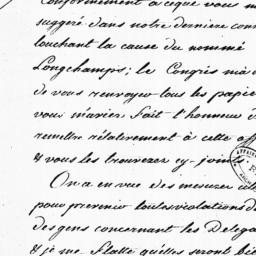 Conformement à ceque vous m
suggeré dans notre derniere con
touchant la cause du nommé
Longchamps; le Congrès m'a
de vous renvoyer tous les papie
vous m'aviez fait l'honneur d
remettre rélativement à cette aff
& vous les trouverez cy-joint
On a en vue des mesures
pour prevenir toutes violations d
des gens concernant les Delega
& je me flatte qu'elles seront bie